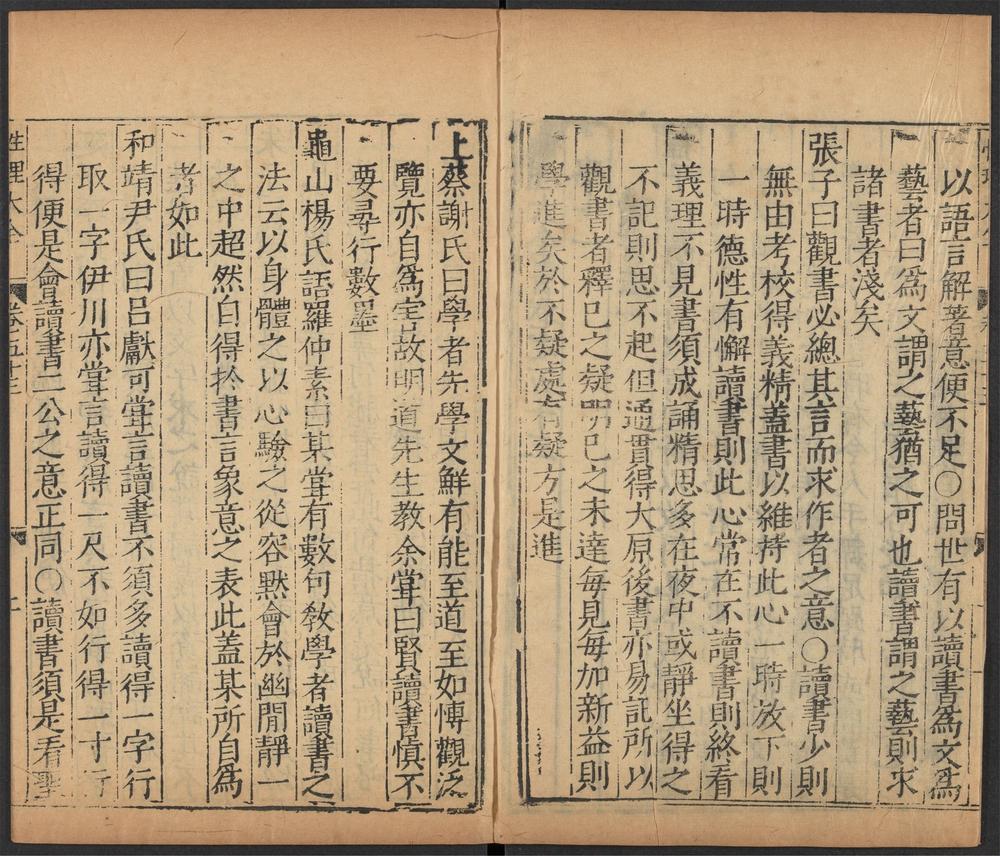 以語言解著意便不足○問世有以讀書爲文爲
藝者曰爲文謂之藝猶之可也讀書謂之藝則求
諸書者淺矣
張子曰觀書必總其言而求作者之意○讀書少則
無由考校得義精蓋書以維持此心一時放下則
一時德性有懈讀書則此心常在不讀書則終看
義理不見書須成誦精思多在夜中或靜坐得之
不記則思不起但通貫得大原後書亦易記所以
觀書者釋己之疑明己之未達每見每加新益則
學進矣於不疑處有疑方是進
上蔡謝氏曰學者先學文鮮有能至道至如博觀泛
覽亦自爲害故明道先生教余嘗曰賢讀書慎不
要尋行數墨
龜山楊氏語羅仲素曰某嘗有數句教學者讀書之
法云以身體之以心驗之從容默會於幽閒靜一
之中超然自得於書言象意之表此蓋某所自爲
者如此
和靖尹氏曰呂獻可嘗言讀書不須多讀得一字行
取一字伊川亦嘗言讀得一尺不如行得一寸行
得便是會讀書二公之意正同○讀書須是看聖
性理大全 卷五十三